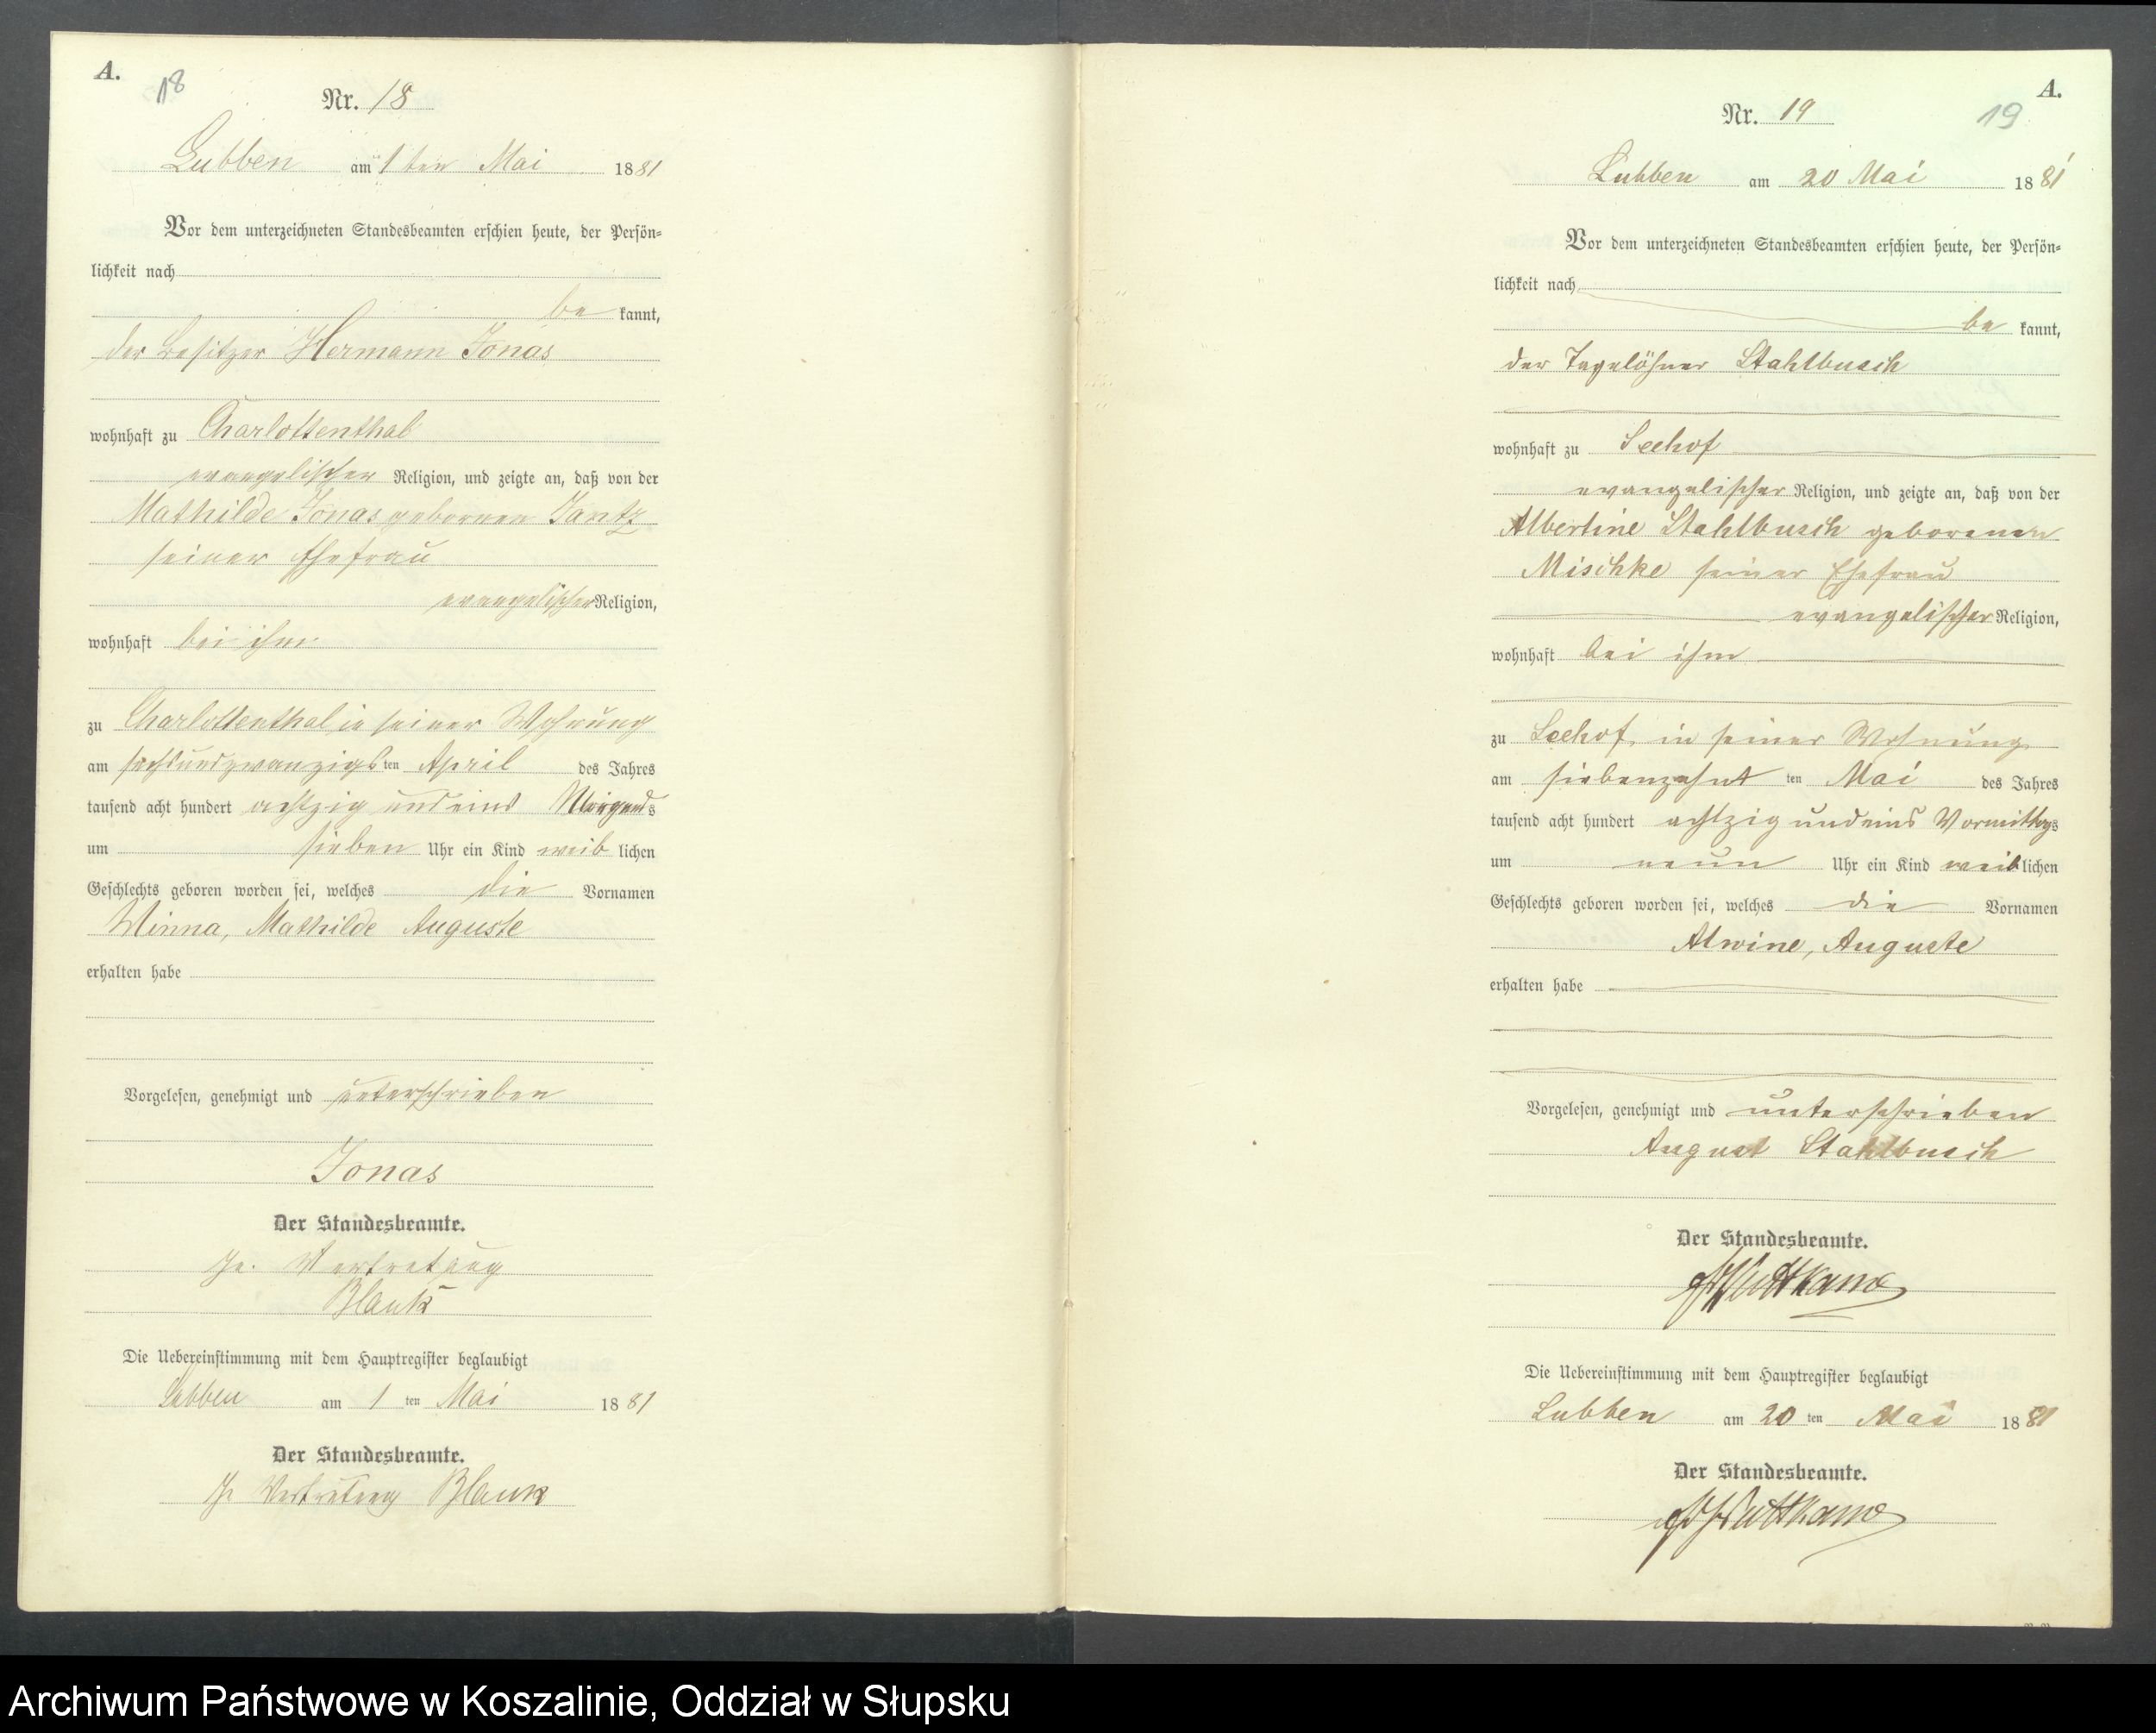 A.
18
Nr. 18
Lubben am 1ten Mai 1881
Vor dem unterzeichneten Standesbeamten erschien heute, der Persön-
lichkeit nach
be kannt,
der Besitzer Hermann Jonas
wohnhaft zu Charlottenthal
evangelischer Religion, und zeigte an, daß von der
Mathilde Jonas gebornen Jantz
seiner Ehefrau
evangelischer Religion,
wohnhaft bei ihm
zu Charlottenthal in seiner Wohnung
am sechsundzwanzigsten April des Jahres
tausend acht hundert achtzig und eins Morgens
um sieben Uhr ein Kind weiblichen
Geschlechts geboren worden sei, welches die Vornamen
Minna, Mathilde Auguste
erhalten habe
Vorgelesen, genehmigt und unterschrieben
Jonas
Der Standesbeamte.
In Vertretung
Blank
Die Uebereinstimmung mit dem Hauptregister beglaubigt
Lubben am 1 ten Mai 1881
Der Standesbeamte.
In Vertretung Blank
A.
19
Nr. 19
Lubben am 20 Mai 1881
Vor dem unterzeichneten Standesbeamten erschien heute, der Persön-
lichkeit nach
be kannt,
der Tagelöhner Stahlbusch
wohnhaft zu Seehof
evangelischer Religion, und zeigte an, daß von der
Albertine Stahlbusch geborenen
Mischke seiner Ehefrau
evangelischer Religion,
wohnhaft bei ihm
zu Seehof, in seiner Wohnung
am siebenzehnt ten Mai des Jahres
tausend acht hundert achtzig und eins Vormittags
um neun Uhr ein Kind weiblichen
Geschlechts geboren worden sei, welches die Vornamen
Alwine, Auguste
erhalten habe
Vorgelesen, genehmigt und unterschrieben
August Stahlbusch
Der Standesbeamte.
Puttkamer
Die Uebereinstimmung mit dem Hauptregister beglaubigt
Lubben am 20 ten Mai 1881
Der Standesbeamte.
Puttkamer
Archiwum Państwowe w Koszalinie, Oddział w Słupsku